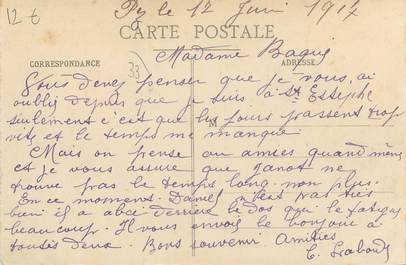 12 €
Py le 12 Juin 1917
CARTE POSTALE
CORRESPONDANCE
ADRESSE
33
Madame Bagué
Vous devez penser que je vous ai
oublié depuis que je suis à St Estèphe
seulement c'est que les jours passent trop
vite et le temps me manque.
Mais on pense au amies quand même
et je vous assure que ganot ne
trouve pas le temps long non plus.
En ce moment Daniel n'est pas très
bien il a abcé derrière le dos qui le fatigue
beaucoup. Il vous envoi le bonjour à
toutes deux. Bons souvenir Amitiés